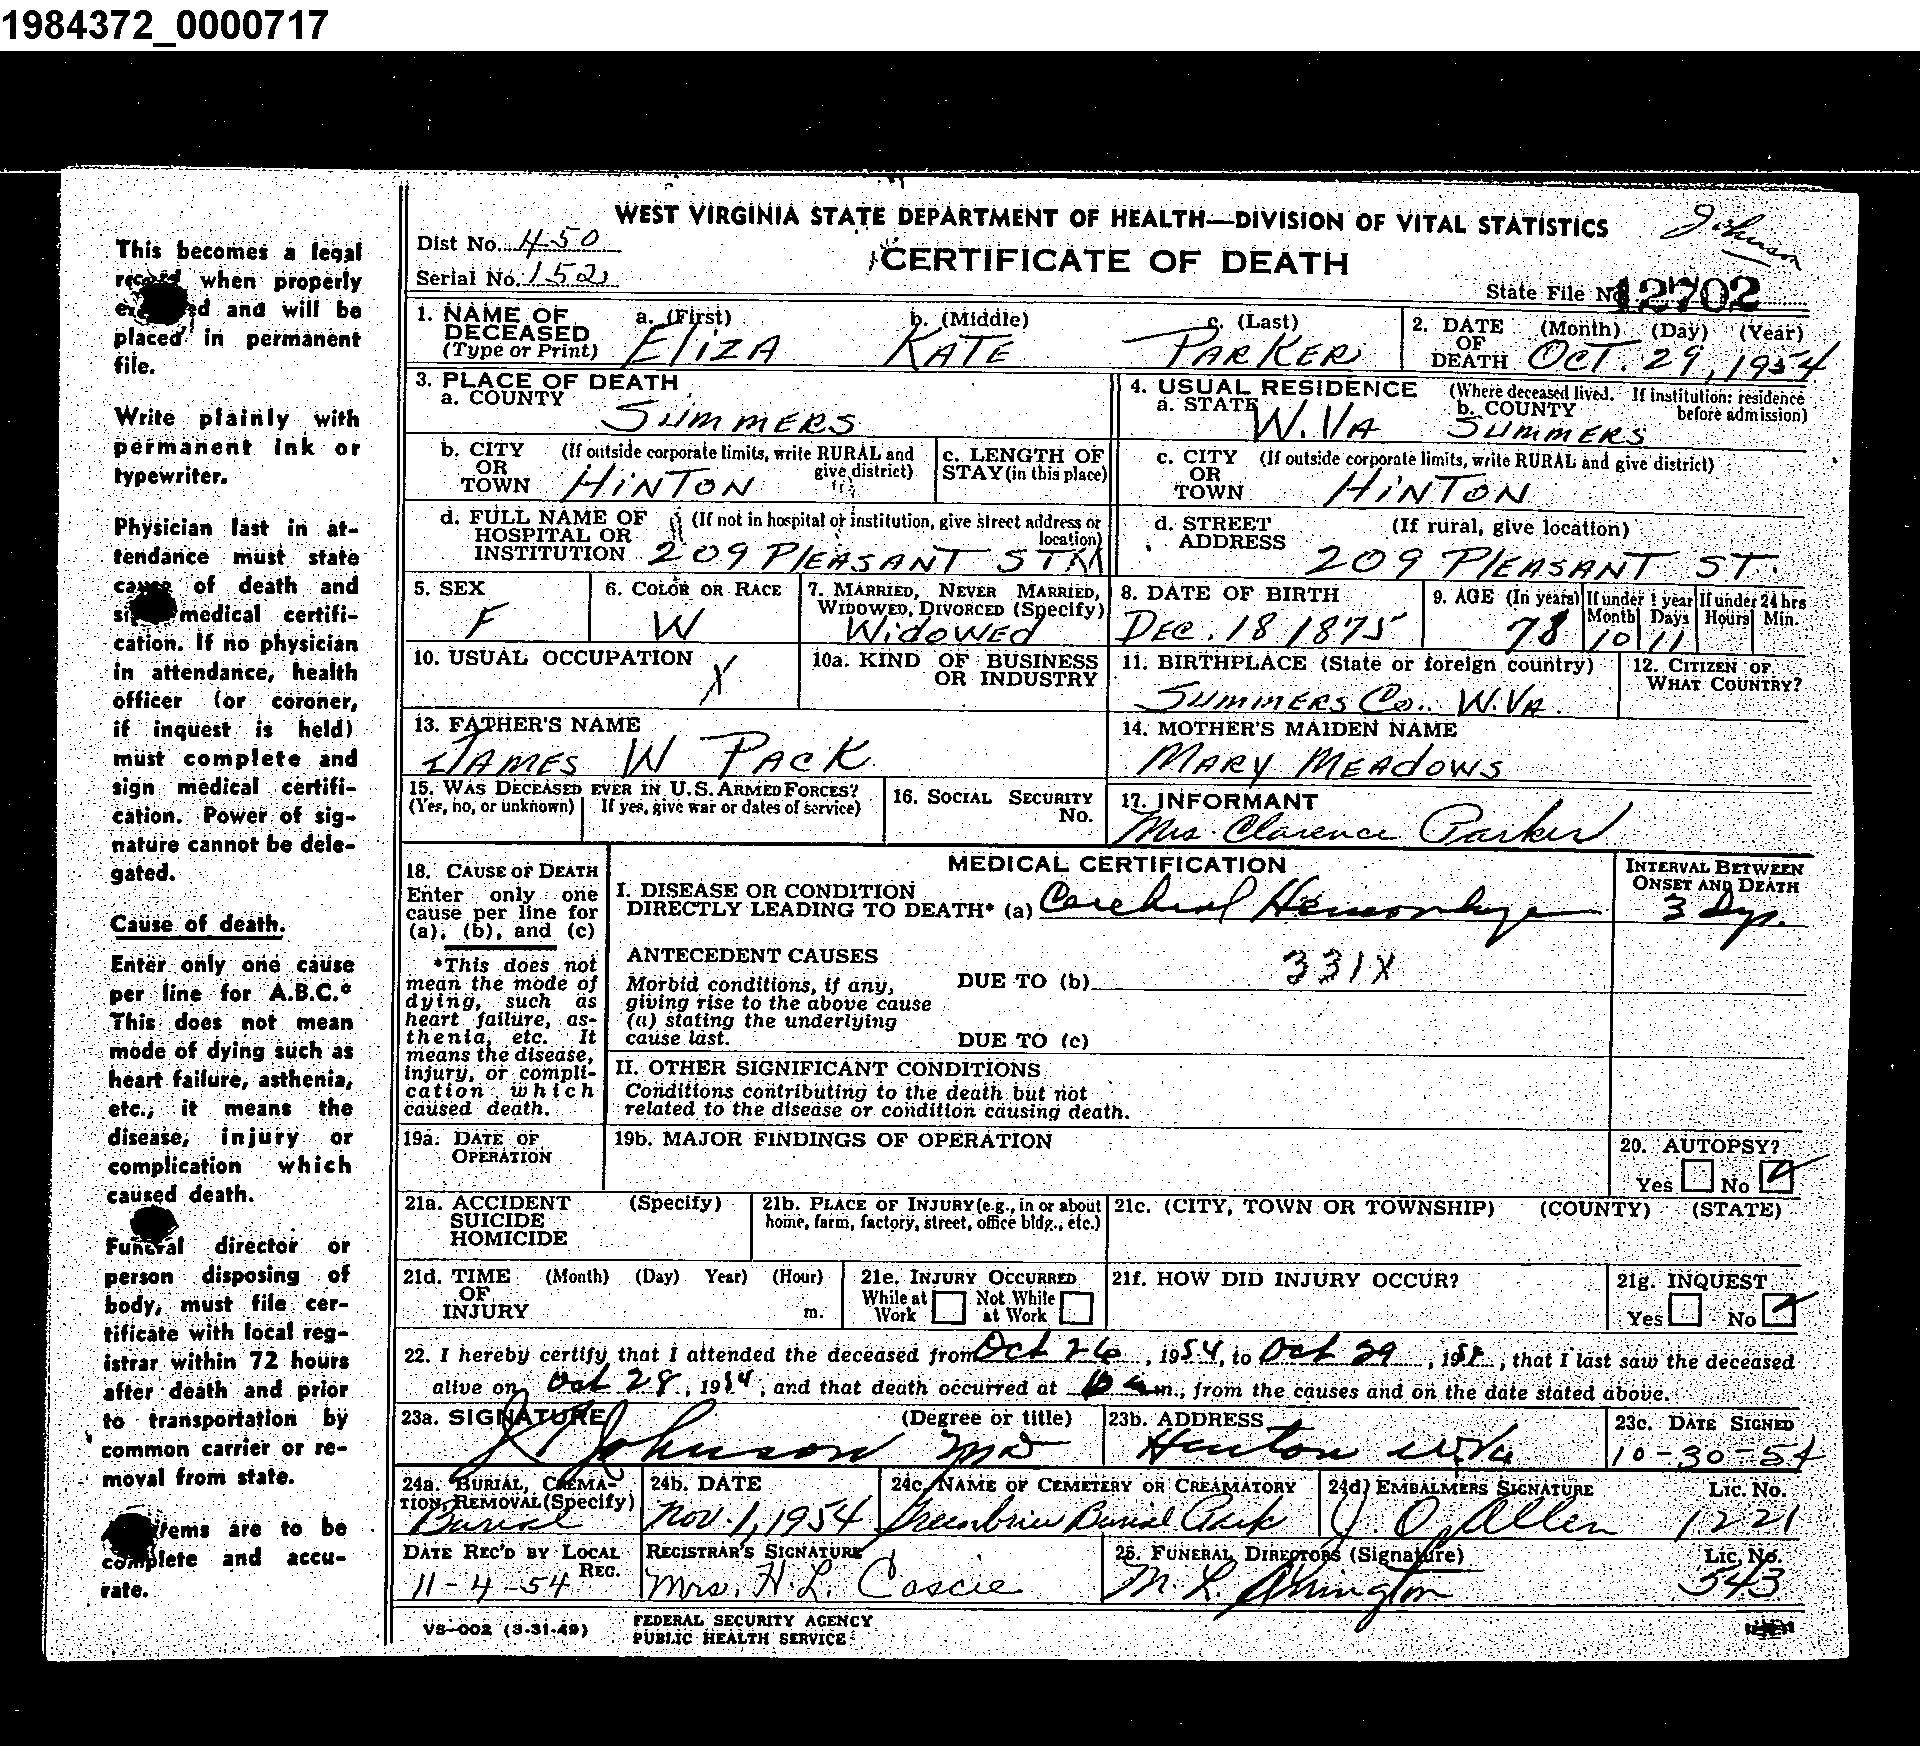 1984372_0000717
WEST VIRGINIA STATE DEPARTMENT OF HEALTH—DIVISION OF VITAL STATISTICS
Johnson
Dist No. 450
CERTIFICATE OF DEATH
Serial No. 152
State File No. 12702
This becomes a legal
record when properly
and will be
placed in permanent
file.
Write plainly with
permanent ink or
typewriter.
Physician last in at-
tendance must state
cause of death and
sign medical certifi-
cation. If no physician
in attendance, health
officer (or coroner,
if inquest is held)
must complete and
sign medical certifi-
cation. Power of sig-
nature cannot be dele-
gated.
Cause of death.
Enter only one cause
per line for A.B.C.*
This does not mean
mode of dying such as
heart failure, asthenia,
etc., it means the
disease, injury or
complication which
caused death.
Funeral director or
person disposing of
body, must file cer-
tificate with local reg-
istrar within 72 hours
after death and prior
to transportation by
common carrier or re-
moval from state.
items are to be
complete and accu-
rate.
1. NAME OF DECEASED (Type or Print)
a. (First) ELIZA
b. (Middle) KATE
c. (Last) PARKER
2. DATE OF DEATH (Month) (Day) (Year) OCT. 29, 1954
3. PLACE OF DEATH
a. COUNTY SUMMERS
4. USUAL RESIDENCE (Where deceased lived. If institution: residence before admission)
a. STATE W.VA
b. COUNTY SUMMERS
b. CITY OR TOWN (If outside corporate limits, write RURAL and give district) HINTON
c. LENGTH OF STAY (in this place)
c. CITY OR TOWN (If outside corporate limits, write RURAL and give district) HINTON
d. FULL NAME OF HOSPITAL OR INSTITUTION (If not in hospital or institution, give street address or location) 209 PLEASANT
d. STREET ADDRESS (If rural, give location) 209 PLEASANT ST.
5. SEX F
6. COLOR OR RACE W
7. MARRIED, NEVER MARRIED, WIDOWED, DIVORCED (Specify) WIDOWED
8. DATE OF BIRTH DEC. 18 1875
9. AGE (In years) 78
If under 1 year Month 10 Days 11
If under 24 hrs Hours Min.
10. USUAL OCCUPATION X
10a. KIND OF BUSINESS OR INDUSTRY
11. BIRTHPLACE (State or foreign country) SUMMERS Co. W.VA.
12. CITIZEN OF WHAT COUNTRY?
13. FATHER'S NAME JAMES W PACK
14. MOTHER'S MAIDEN NAME MARY MEADOWS
15. WAS DECEASED EVER IN U.S. ARMED FORCES?
(Yes, no, or unknown) If yes, give war or dates of service)
16. SOCIAL SECURITY No.
17. INFORMANT Mrs. Clarence Parker
18. CAUSE OF DEATH
Enter only one
cause per line for
(a), (b), and (c)
*This does not
mean the mode of
dying, such as
heart failure, as-
thenia, etc. It
means the disease,
injury, or compli-
cation which
caused death.
MEDICAL CERTIFICATION
INTERVAL BETWEEN ONSET AND DEATH
I. DISEASE OR CONDITION
DIRECTLY LEADING TO DEATH* (a) Cerebral Hemorrhage 3 Dys.
ANTECEDENT CAUSES
Morbid conditions, if any,
giving rise to the above cause
(a) stating the underlying
cause last.
DUE TO (b) 331X
DUE TO (c)
II. OTHER SIGNIFICANT CONDITIONS
Conditions contributing to the death but not
related to the disease or condition causing death.
19a. DATE OF OPERATION
19b. MAJOR FINDINGS OF OPERATION
20. AUTOPSY?
Yes No
21a. ACCIDENT SUICIDE HOMICIDE (Specify)
21b. PLACE OF INJURY (e.g., in or about home, farm, factory, street, office bldg., etc.)
21c. (CITY, TOWN OR TOWNSHIP) (COUNTY) (STATE)
21d. TIME OF INJURY (Month) (Day) Year) (Hour) m.
21e. INJURY OCCURRED
While at Work Not While at Work
21f. HOW DID INJURY OCCUR?
21g. INQUEST
Yes No
22. I hereby certify that I attended the deceased from Oct 26, 1954, to Oct 29, 1954, that I last saw the deceased
alive on Oct 28, 1954, and that death occurred at m., from the causes and on the date stated above.
23a. SIGNATURE Johnson MD (Degree or title)
23b. ADDRESS Hinton W.Va
23c. DATE SIGNED 10-30-54
24a. BURIAL, CREMA-
TION, REMOVAL (Specify) Burial
24b. DATE Nov. 1, 1954
24c. NAME OF CEMETERY OR CREAMATORY Greenbrier Burial Park
24d. EMBALMERS SIGNATURE J. O. Allen
Lic. No. 1221
DATE REC'D BY LOCAL REG. 11-4-54
REGISTRAR'S SIGNATURE Mrs. H.L. Cascie
25. FUNERAL DIRECTORS (Signature) M. L. Arrington
Lic. No. 543
VS-002 (3-31-49)
FEDERAL SECURITY AGENCY
PUBLIC HEALTH SERVICE